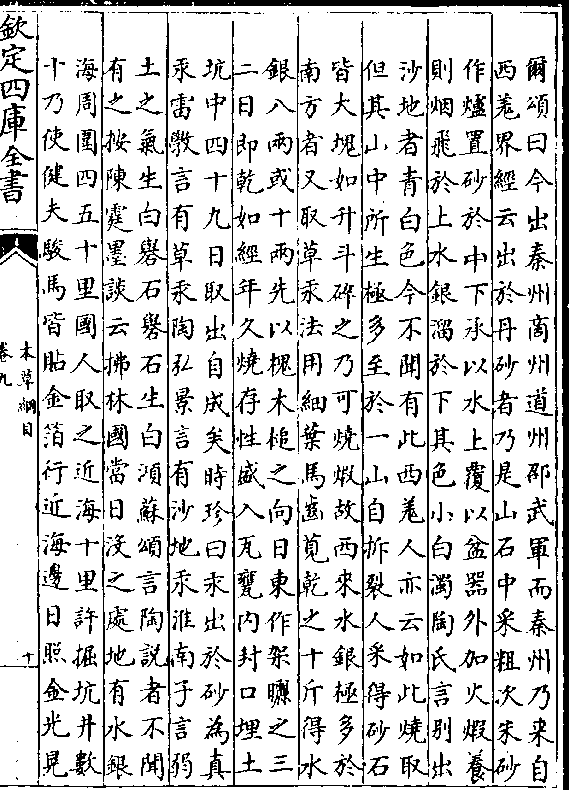 爾頌曰今出秦州商州道州邵武軍而秦州乃來自
西羗界經云出於丹砂者乃是山石中采粗次朱砂
作爐置砂於中下承以水上覆以盆器外加火煆養
則烟飛於上水銀溜於下其色小白濁陶氏言别出
沙地者青白色今不聞有此西羗人亦云如此燒取
但其山中所生極多至於一山自拆裂人采得砂石
皆大塊如升斗碎之乃可燒煆故西來水銀極多於
南方者又取草汞法用細葉馬齒莧乾之十斤得水
銀八兩或十兩先以槐木槌之向日東作架曬之三
二日即乾如經年久燒存性盛入瓦甕内封口埋土
坑中四十九日取出自成矣時珍曰汞出於砂為真
汞雷斆言有草汞陶弘景言有沙地汞淮南子言弱
土之氣生白礜石礜石生白澒蘇頌言陶説者不聞
有之按陳霆墨談云拂林國當日沒之處地有水銀
海周圍四五十里國人取之近海十里許掘坑井數
十乃使健夫駿馬皆貼金箔行近海邊日照金光晃
欽定四庫全書
本草綱目
卷九
十